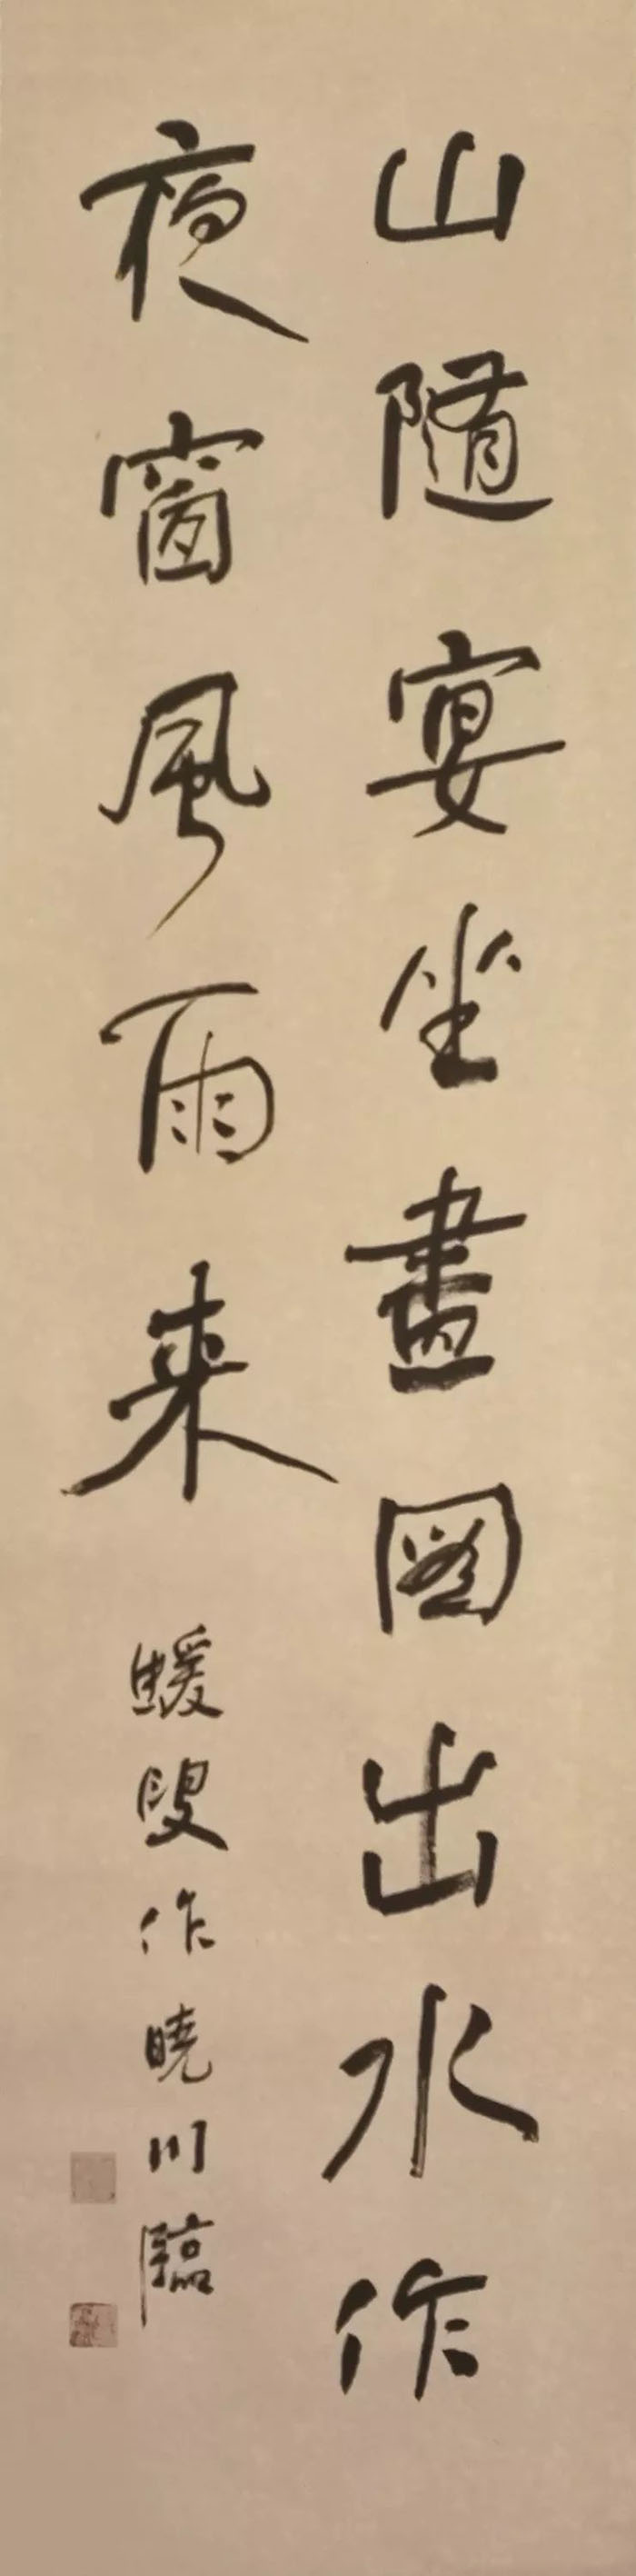 山随宴坐畫圖出水作
夜窗風雨来
蝯叟作曉川臨